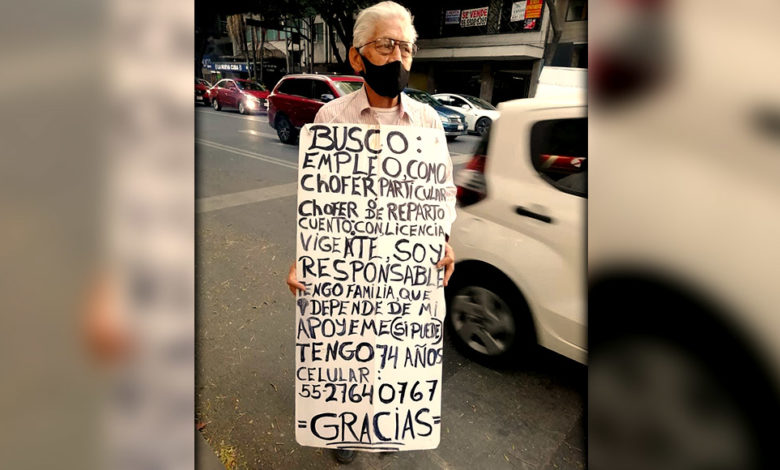 SE VENDE
BUSCO:
EMPLEO, COMO
CHOFER PARTICULAR
O
CHOFER DE REPARTO
CUENTO CON LICENCIA
VIGENTE, SOY
RESPONSABLE
TENGO FAMILIA, QUE
DEPENDE DE MI
APOYEME (SI PUEDE)
TENGO 74 AÑOS
CELULAR:
55 2764 0767
=GRACIAS=